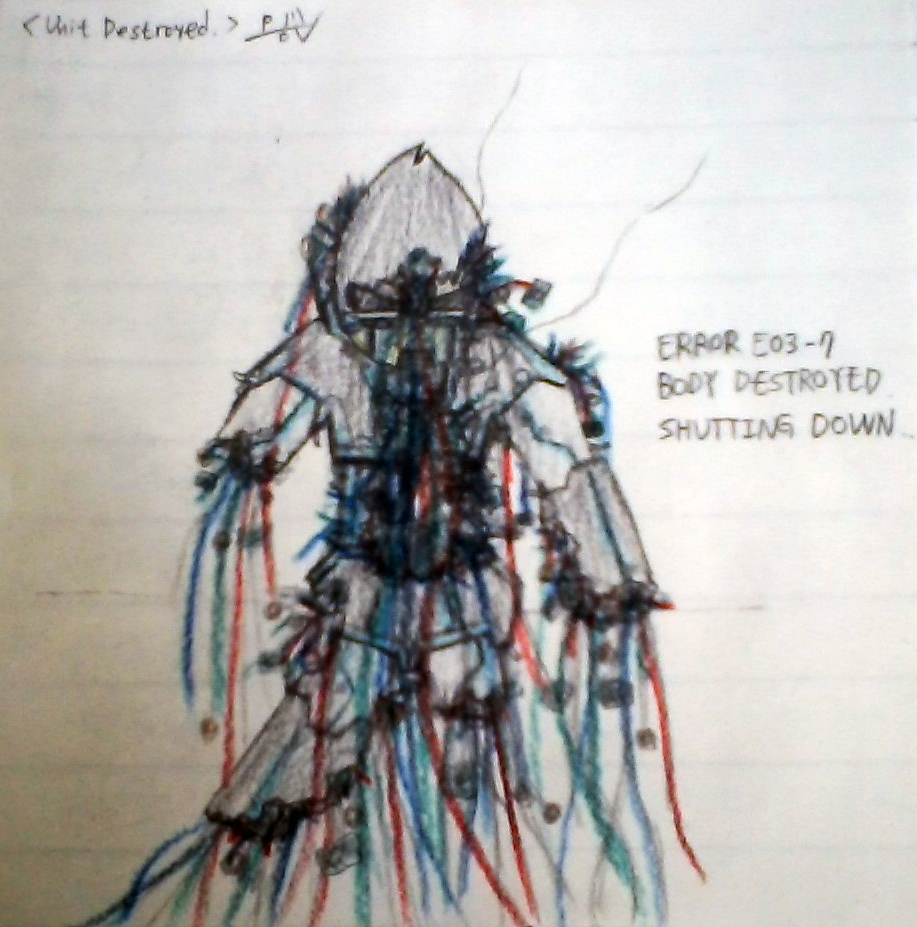 < Unit Destroyed. >
ERROR E03-7
BODY DESTROYED
SHUTTING DOWN...